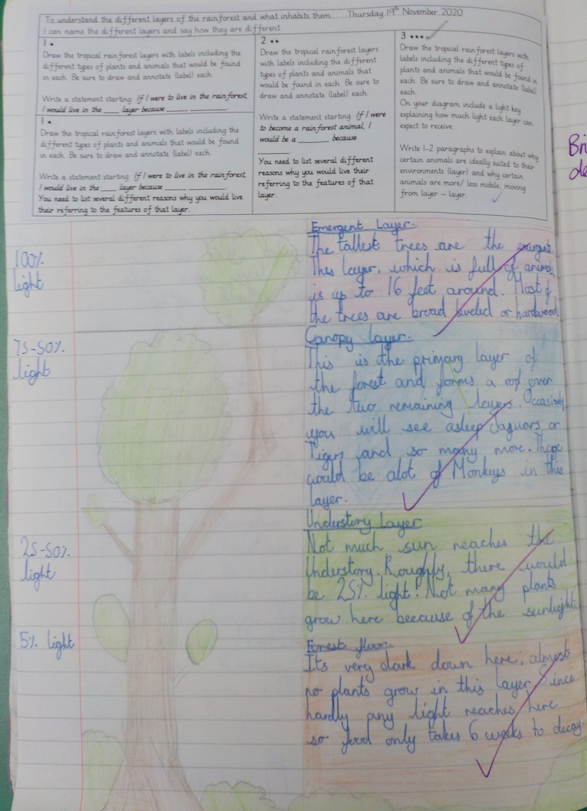 To understand the different layers of the rainforest and what inhabits them. Thursday 19th November 2020
I can name the different layers and say how they are different
1 *
Draw the tropical rainforest layers with labels including the different types of plants and animals that would be found in each. Be sure to draw and annotate (label) each.
Write a statement starting If I were to live in the rainforest, I would live in the ___ layer because ___ ___
1 *
Draw the tropical rainforest layers with labels including the different types of plants and animals that would be found in each. Be sure to draw and annotate (label) each.
Write a statement starting If I were to live in the rainforest, I would live in the ___ layer because ___
You need to list several different reasons why you would live their referring to the features of that layer.
2 **
Draw the tropical rainforest layers with labels including the different types of plants and animals that would be found in each. Be sure to draw and annotate (label) each.
Write a statement starting If I were to become a rainforest animal, I would be a ___ because ___
You need to list several different reasons why you would live their referring to the features of that layer.
3 ***
Draw the tropical rainforest layers with labels including the different types of plants and animals that would be found in each. Be sure to draw and annotate (label) each.
On your diagram include a light key explaining how much light each layer can expect to receive.
Write 1-2 paragraphs to explain about why certain animals are ideally suited to their environments (layer) and why certain animals are more/ less mobile, moving from layer - layer.
100% light
Emergent Layer
The tallest trees are the
This layer, which is full of
is up to 16 feet around. Most of
the trees are broad leveled or hardwood.
75-50% light
Canopy Layer.
This is the primary layer of
the forest and forms a roof over
the two remaining layers.
you will see asleep Jaguars or
Tigers and so many more. There
would be alot of Monkeys in this
layer.
25-50% light
Understory Layer
Not much sun reaches the
Understory. Roughly, there would
be 25% light. Not many plants
grow here because of the sunlight.
5% light
Forest floor
Its very dark down here; almost
no plants grow in this layer, since
hardly any light reaches here
so food only takes 6 weeks to decay.